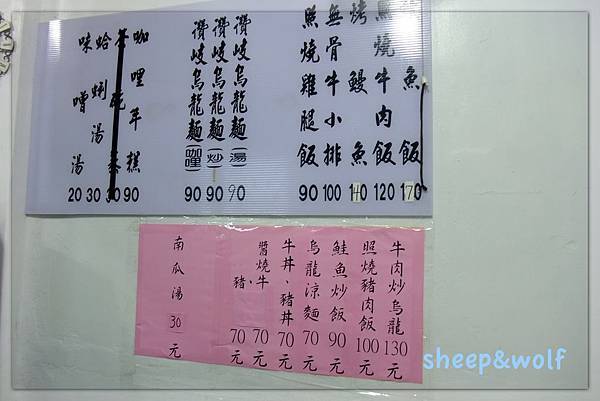 魚飯 170
照燒牛肉飯 120
烤鰻魚 140
無骨牛小排 100
照燒雞腿飯 90
讚岐烏龍麵(湯) 90
讚岐烏龍麵(炒) 90
讚岐烏龍麵(咖哩) 90
咖哩 90
30
蛤蜊湯 30
味噌湯 20
牛肉炒烏龍 130元
照燒豬肉飯 100元
鮭魚炒飯 90元
烏龍涼麵 70元
牛丼、豬丼 70元
醬燒牛、 70元
豬 70元
南瓜湯 30元
sheep&wolf